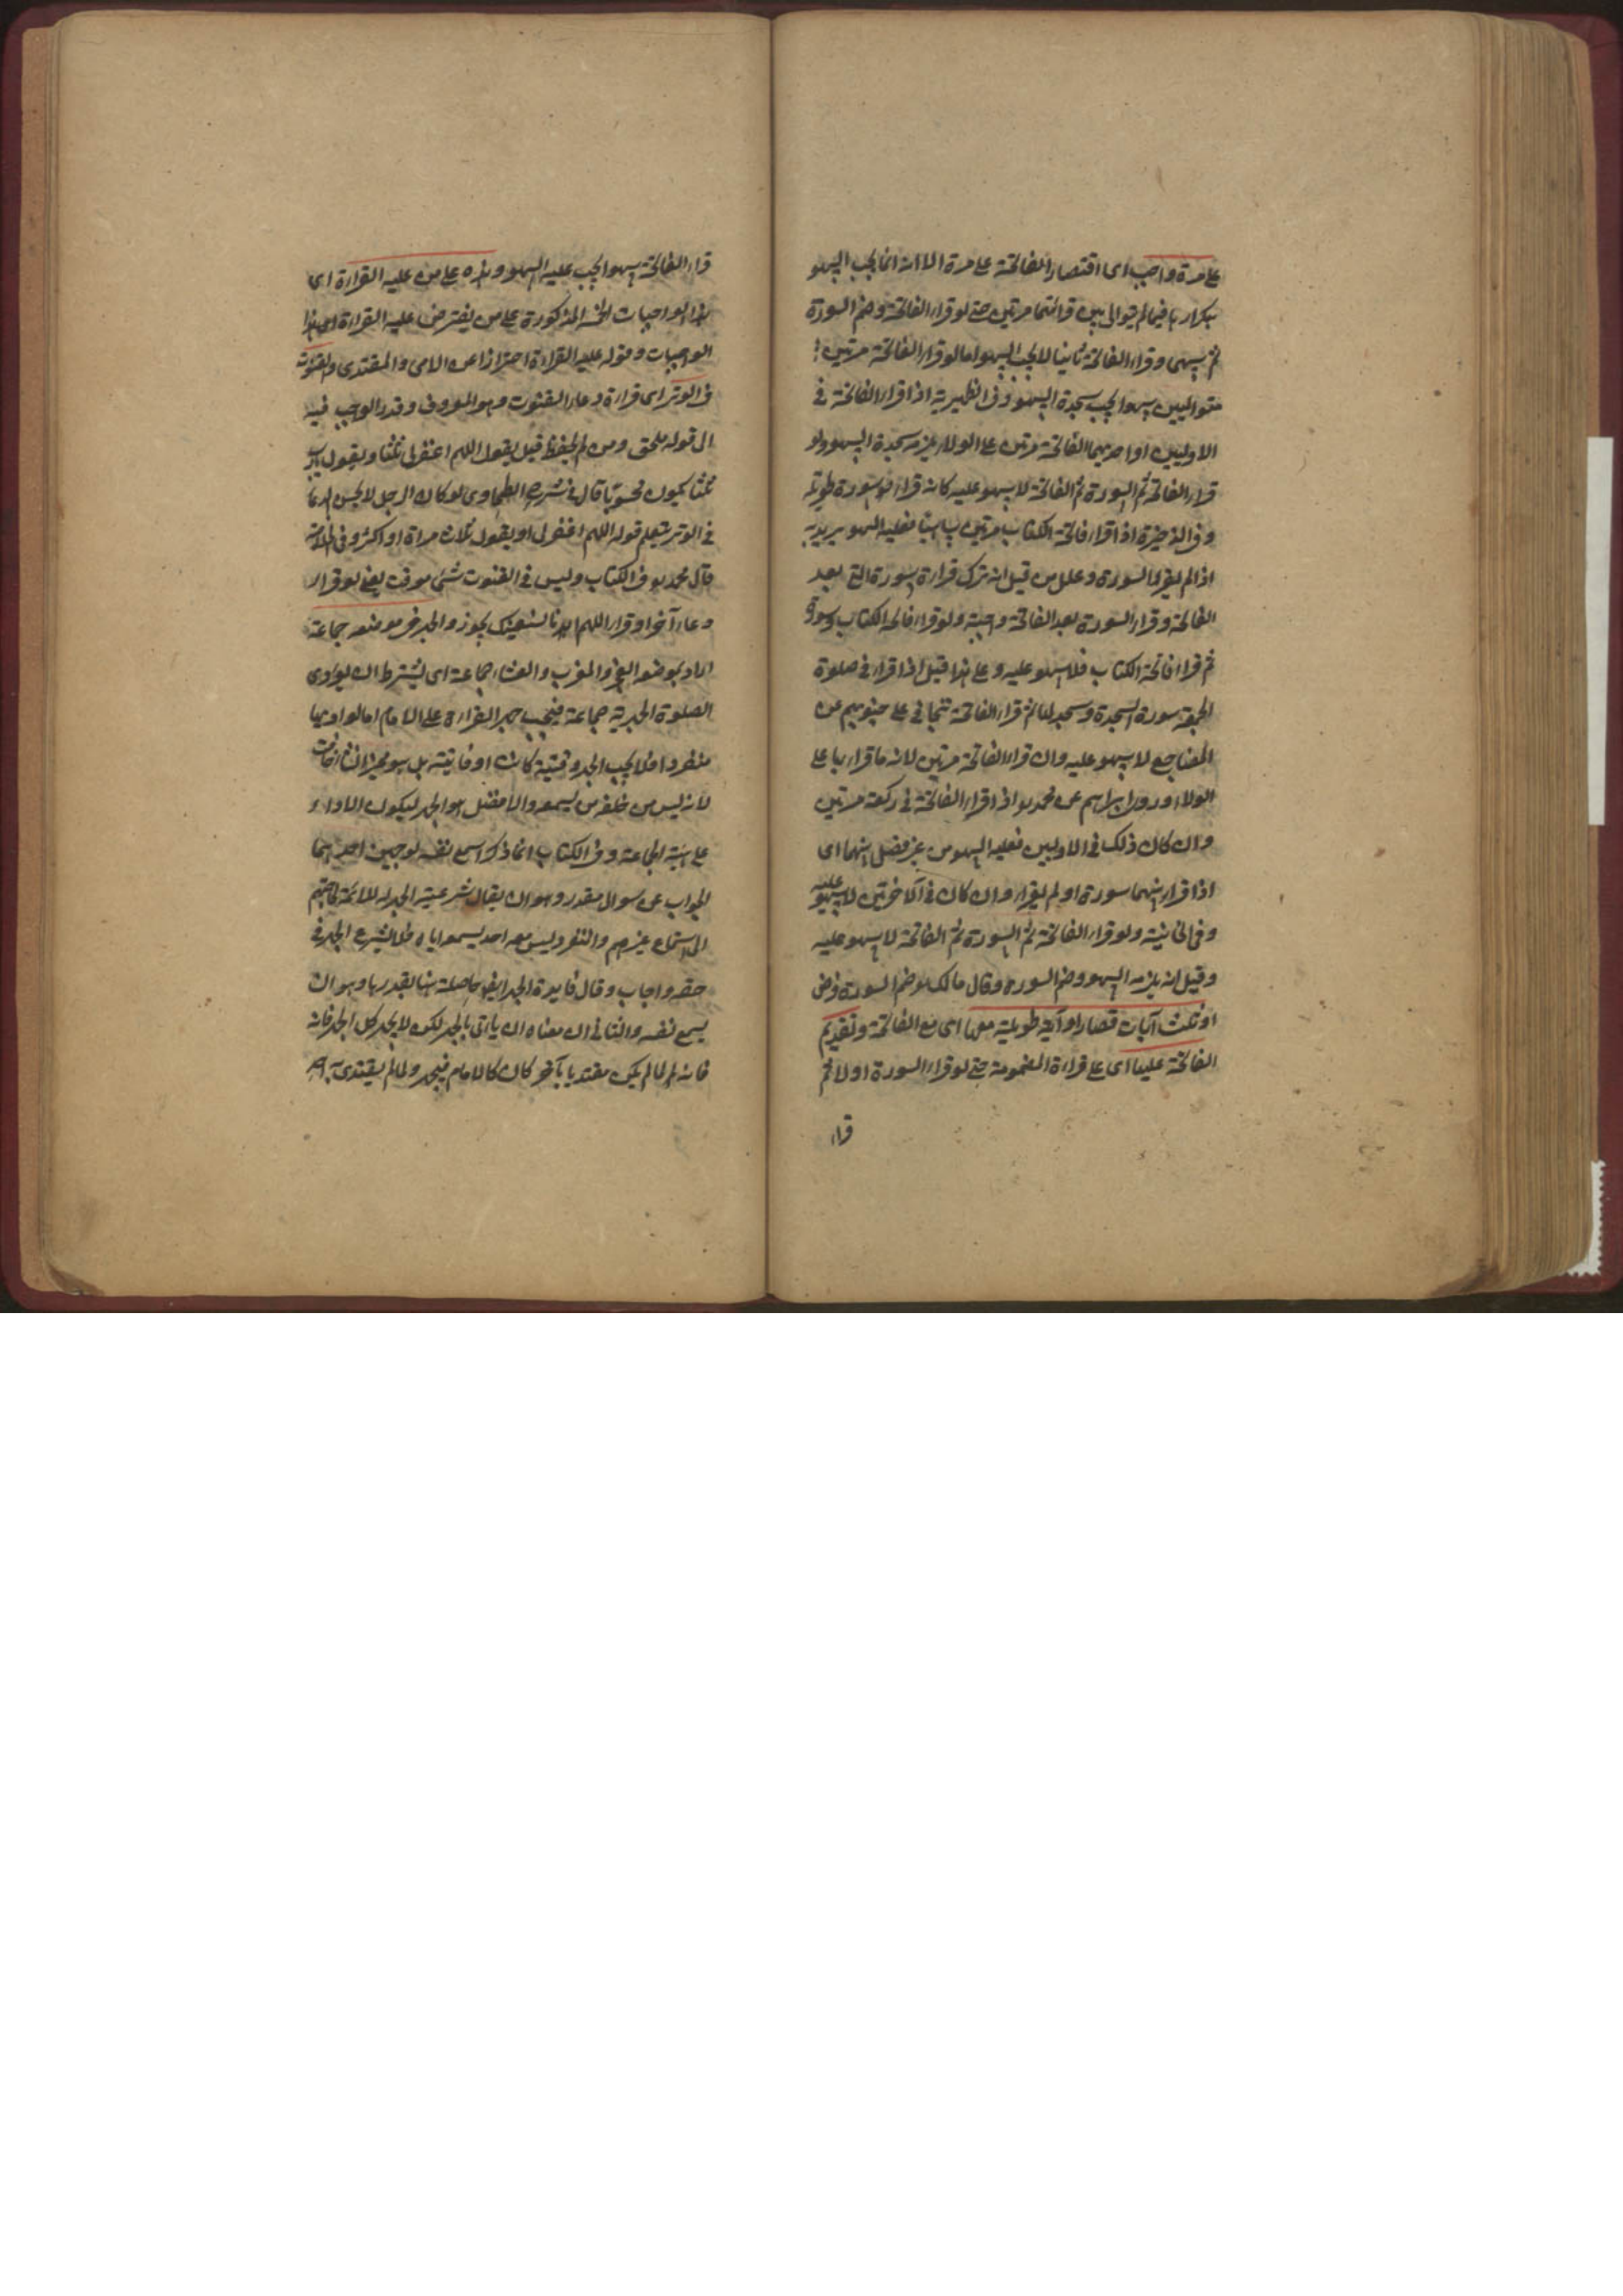 على مرة واجب اى اقتصار الفاتحة على مرة الا انه انما يجب السهو
بتكرارها فيما لم يتوالى بين قرائتهما مرتين حتى لو قراء الفاتحة وضم السورة
ثم يسهى وقراء الفاتحة ثانيا لا يجب السهو اما لو قراء الفاتحة مرتين
متواليين سهوا يجب سجدة السهو وفى الظهيرية اذا قراء الفاتحة فى
الاوليين او احديهما الفاتحة مرتين على الولاء يلزمه سجدة السهو ولو
قراء الفاتحة ثم السورة ثم الفاتحة لا سهو عليه كانه قراء سورة طويلة
وفى الذخيرة اذا قراء فاتحة الكتاب مرتين ساهيا فعليه السهو يريد به
اذا لم يقراء السورة وعلل من قبل انه ترك قراءة سورة التى بعد
الفاتحة وقراء السورة بعد الفاتحة واجبة ولو قراء فاتحة الكتاب وسورة
ثم قراء فاتحة الكتاب فلا سهو عليه وعلى هذا قيل اذا قراء فى صلوة
الجمعة سورة السجدة وسجد لها ثم قراء الفاتحة تتجافى على جنوبهم عن
المضاجع لا سهو عليه وان قراء الفاتحة مرتين لانه ما قراء بها على
الولاء وروى ابراهيم عن محمد اذا قراء الفاتحة فى ركعة مرتين
وان كان ذلك فى الاوليين فعليه السهو من غير فصل بينهما اى
اذا قراء بينهما سورة او لم يقراء وان كان فى الآخرتين لا سهو عليه
وفى الخانية ولو قراء الفاتحة ثم السورة ثم الفاتحة لا سهو عليه
وقيل انه يلزمه السهو وضم السورة وقال مالك ضم السورة فرض
او ثلث آيات قصار او آية طويلة معها اى مع الفاتحة وتقديم
الفاتحة عليها اى على قراءة المضمومة حتى لو قراء السورة اولا ثم
قراء
قراء الفاتحة سهوا يجب عليه السهو وهذه على من عليه القراءة اى
هذا الواجبات الخمسة المذكورة على من يفترض عليه القراءة اى هذا
الوجبات وقوله عليه القراءة احترازا عن الامى والمقتدى والقنوت
فى الوتر اى قراءة دعاء القنوت وهو المعروف وقدر الواجب فيه
الى قوله ملحق ومن لم يحفظ قيل يقول اللهم اغفرلى ثلثا ويقول يارب
ثلثا يكون محسوبا قال فى شرح الطحاوى لو كان الرجل لا يحسن الدعا
فى الوتر يتعلم قوله اللهم اغفرلى او يقول ثلاث مراة او اكثر وفى الخلاصة
قال محمد فى الكتاب وليس فى القنوت شئ موقت يعنى لو قراء
دعاء آخر او قراء اللهم انا نستعينك يجوز والجهر فى موضعه جماعة
اراد بموضعه الفجر والمغرب والعشاء جماعة اى يشترط ان يؤدى
الصلوة الجهرية جماعة فيجب جهر القراءة على الامام اما لو اديها
منفردا فلا يجب الجهر وقتية كانت او فايتة بل هو مخير ان شاء خافت
لانه ليس من خلفه من يسمعه والافضل هو الجهر ليكون الاداء
على هيئة الجماعة وفى الكتاب انما ذكر اسمع نفسه لوجهين احدهما
الجواب عن سوال مقدر وهو ان يقال شرعية الجهر للائمة لحاجتهم
الى استماع غيرهم والمنفرد ليس معه احد يسمع اياه فلا يشرع الجهر فى
حقه واجاب وقال فايدة الجهر ايضا حاصلة هنا بقدرها وهو ان
يسمع نفسه والثانى ان معناه ان ياتى بالجهر لكن لا يجهر كل الجهر فانه
فانه لما لم يكن مقتديا بآخر كان كالامام فيجهر ولما لم يقتدى به